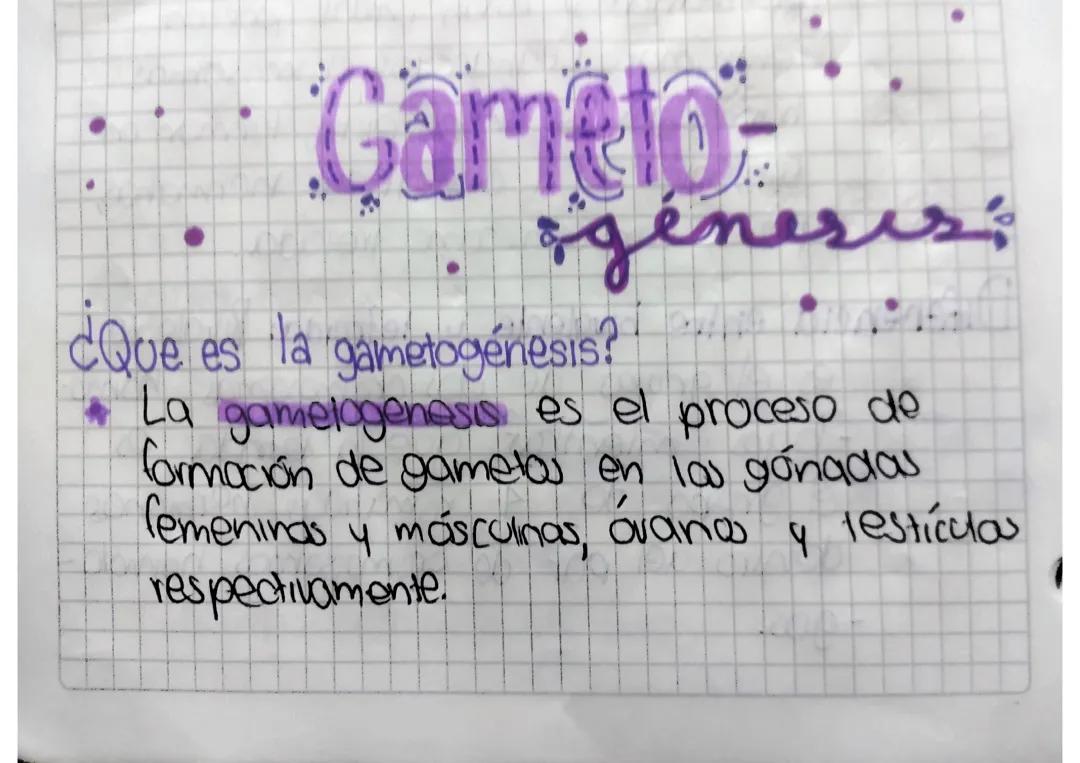 Gameto-
génesis
¿Que es la gametogénesis?
La gametogenesis es el proceso de
formación de gametos en las gónadas
femeninas y másculnas, óvarios y testículos
respectivamente.